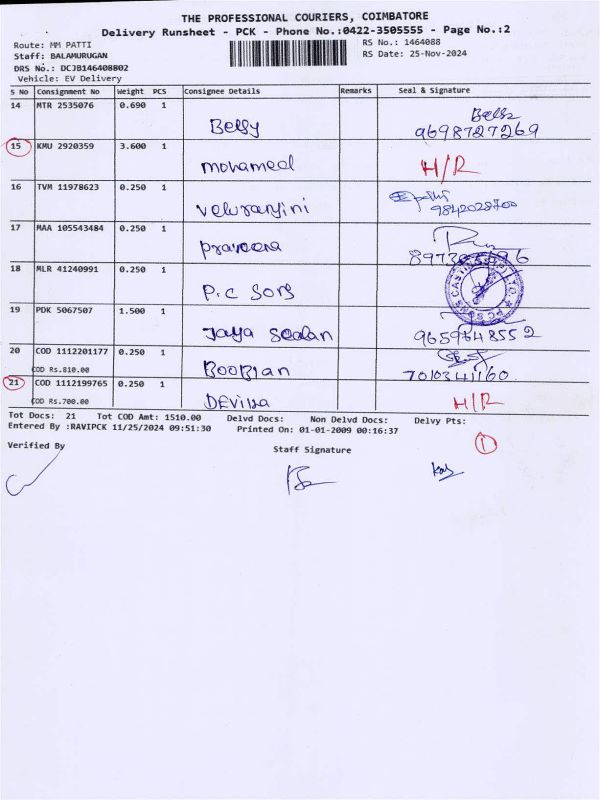 THE PROFESSIONAL COURIERS, COIMBATORE
Delivery Runsheet - PCK - Phone No.:0422-3505555 - Page No.:2
Route: MM PATTI
RS No.: 1464088
Staff: BALAMURUGAN
RS Date: 25-Nov-2024
DRS No.: DCJB146408802
Vehicle: EV Delivery
S No Consignment No Weight PCS Consignee Details Remarks Seal & Signature
14 MTR 2535076 0.690 1 Belsy
9698727269
15 KMU 2920359 3.600 1 mohamed H/R
16 TVM 11978623 0.250 1 veluranjini 9842028700
17 MAA 105543484 0.250 1 praveena
18 MLR 41240991 0.250 1 P.C Sons
19 PDK 5067507 1.500 1 Jaya Seelan 9659648552
20 COD 1112201177 0.250 1 BooBlan 7010341160
COD Rs.810.00
21 COD 1112199765 0.250 1 H/R
COD Rs.700.00
Tot Docs: 21 Tot COD Amt: 1510.00 Delvd Docs: Non Delvd Docs: Delvy Pts:
Entered By :RAVIPCK 11/25/2024 09:51:30 Printed On: 01-01-2009 00:16:37
1
Verified By
Staff Signature